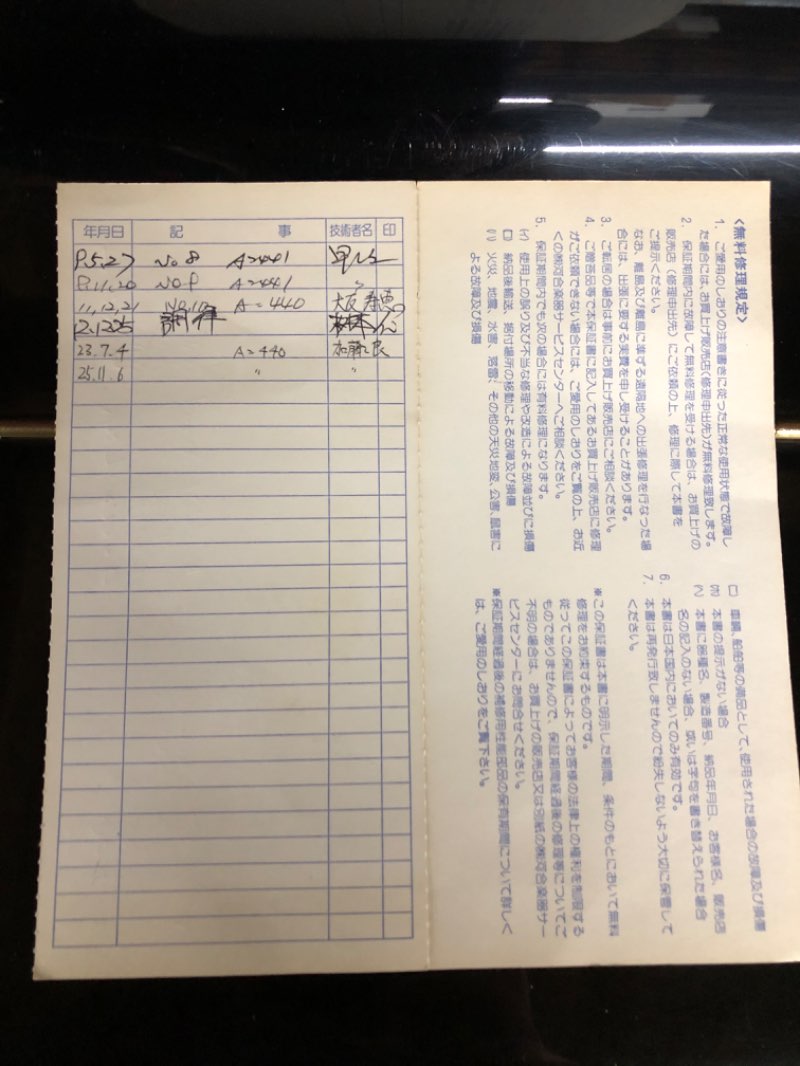 年月日 記 事 技術者名 印
8.5.27 No 8 A=441
8.11.20 No.9 A=441 〃
11.12.21 No.10 A=440 大阪
12.12.25 調律
23.7.4 A=440 加藤
25.11.6 〃 〃
<無料修理規定>
1. ご愛用のしおりの注意書きに従った正常な使用状態で故障し
た場合には、お買上げ販売店(修理申出先)が無料修理致します。
2. 保証期間内に故障して無料修理を受ける場合は、お買上げの
販売店(修理申出先)にご依頼の上、修理に際して本書を
ご提示ください。
なお、離島及び離島に準ずる遠隔地への出張修理を行なった場
合には、出張に要する実費を申し受けることがあります。
3. ご転居の場合は事前にお買上げ販売店にご相談ください。
4. ご贈答品等で本保証書に記入してあるお買上げ販売店に修理
がご依頼できない場合には、ご愛用のしおりをご覧の上、お近
くの㈱河合楽器サービスセンターへご相談ください。
5. 保証期間内でも次の場合には有料修理になります。
(イ) 使用上の誤り及び不当な修理や改造による故障並びに損傷
(ロ) 納品後輸送、据付場所の移動による故障及び損傷
(ハ) 火災、地震、水害、落雷、その他の天災地変、公害、鼠害に
よる故障及び損傷
車輌、船舶等の備品として、使用された場合の故障及び損傷
(ホ) 本書の提示がない場合
(ヘ) 本書に器種名、製造番号、納品年月日、お客様名、販売店
名の記入のない場合、或いは字句を書き替えられた場合
6. 本書は日本国内においてのみ有効です。
7. 本書は再発行致しませんので紛失しないよう大切に保管して
ください。
※この保証書は本書に明示した期間、条件のもとにおいて無料
修理をお約束するものです。
従ってこの保証書によってお客様の法律上の権利を制限する
ものでありませんので、保証期間経過後の修理等についてご
不明の場合は、お買上げの販売店又は別紙の㈱河合楽器サー
ビスセンターにお問合せください。
※保証期間経過後の補修用性能部品の保有期間について詳しく
は、ご愛用のしおりをご覧下さい。